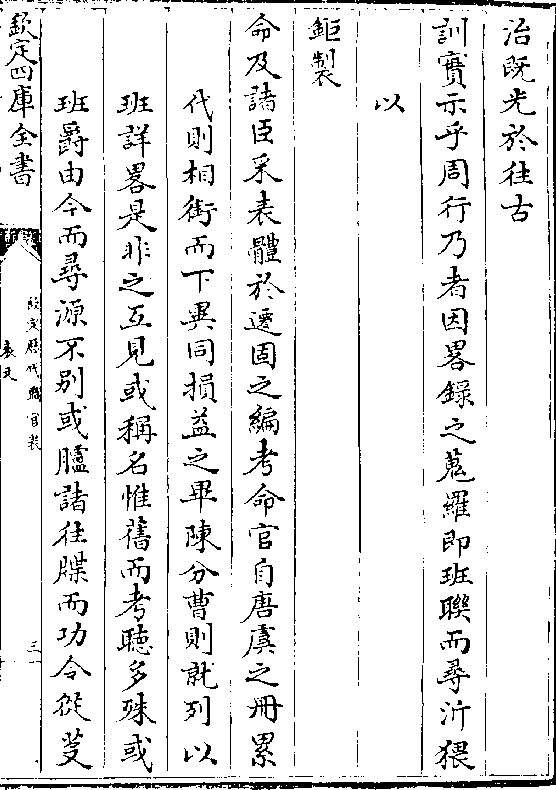 治既光於往古
訓實示乎周行乃者因畧錄之蒐羅即班聯而尋泝猥
以
鉅製
命及諸臣采表體於遷固之編考命官自唐虞之冊累
代則相銜而下異同損益之畢陳分曹則就列以
班詳畧是非之互見或稱名惟舊而考聴多殊或
班爵由今而尋源不别或臚諸往牒而功令從芟
欽定四庫全書
欽定歷代職官表
表文
三